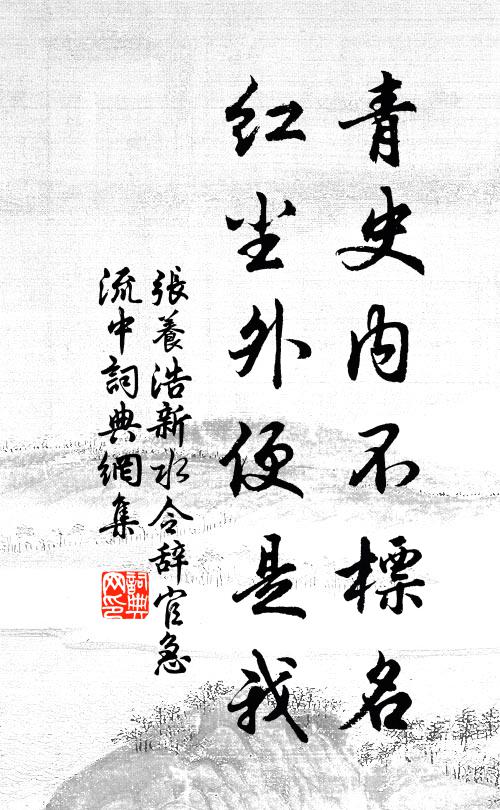 青史内不標名
红尘外便是我
張養浩新水令辞官急
流中詞典網集
詞典网印